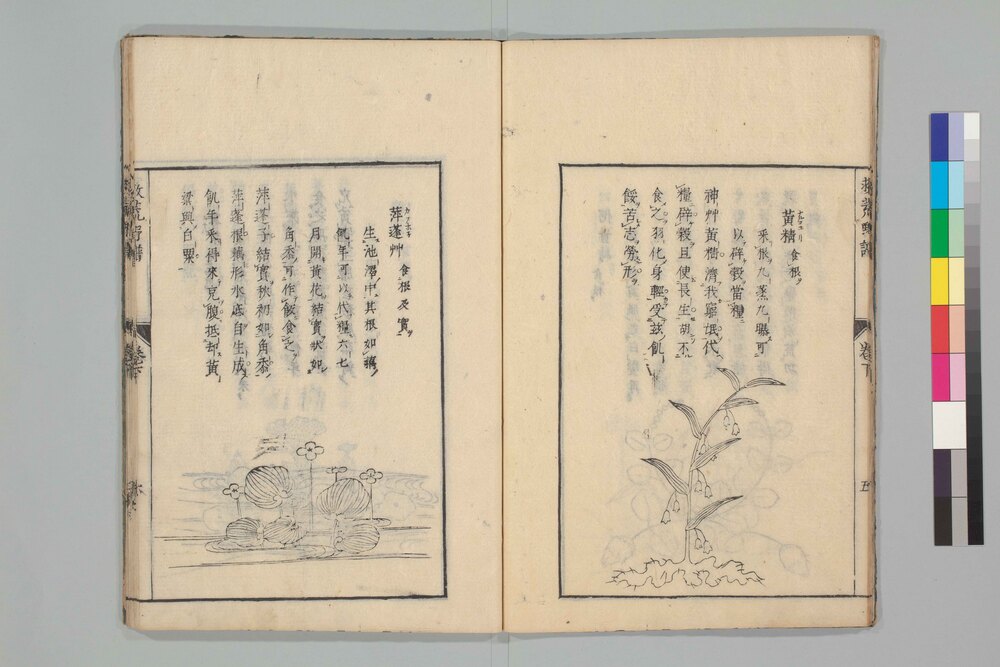 黃精 食根
采根九蒸九曝可
以辟穀當糧
神艸黃精濟我窮氓代
糧辟穀且使長生胡不
食之羽化身輕受茲飢
餒苦志勞形
卷下
五
萍蓬艸 食根及實
生池澤中其根如藕
飢年可以代糧六七
月開黃花結實狀如
角黍可作飯食之
萍蓬子結實秋初如角黍
萍蓬根藕形水底自生成
飢年采得來克腹抵却黃
粱與白粟